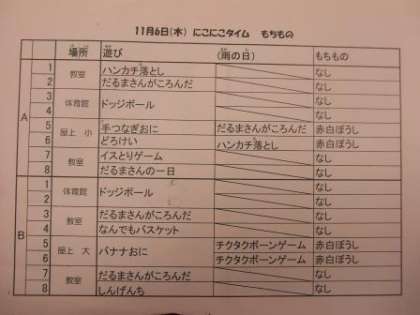 11月6日(木) にこにこタイム もちもの
場所 遊び (雨の日) もちもの
A
1 教室 ハンカチ落とし なし
2 だるまさんがころんだ なし
3 体育館 ドッジボール なし
4 なし
5 屋上 小 手つなぎおに だるまさんがころんだ 赤白ぼうし
6 どろけい ハンカチ落とし 赤白ぼうし
7 教室 イスとりゲーム なし
8 だるまさんの一日 なし
B
1 体育館 ドッジボール なし
2 なし
3 教室 だるまさんがころんだ なし
4 なんでもバスケット なし
5 屋上 大 バナナおに チクタクボーンゲーム 赤白ぼうし
6 チクタクボーンゲーム 赤白ぼうし
7 教室 だるまさんがころんだ なし
8 しんげんち なし